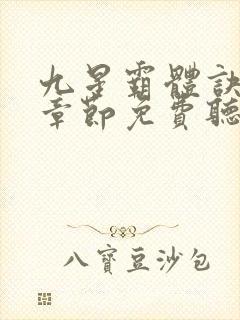 九星霸體訣
章節免費聽
八寶豆沙包